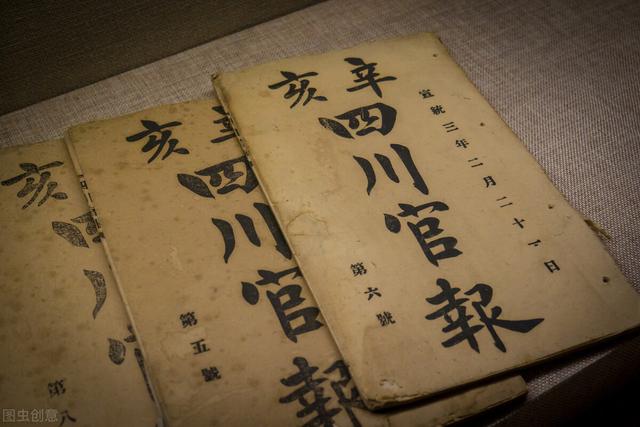 宣統三年二月二十一日
辛亥
四川官報
第六號
辛亥
四川官報
第五號
亥
四川官
第八
图虫创意